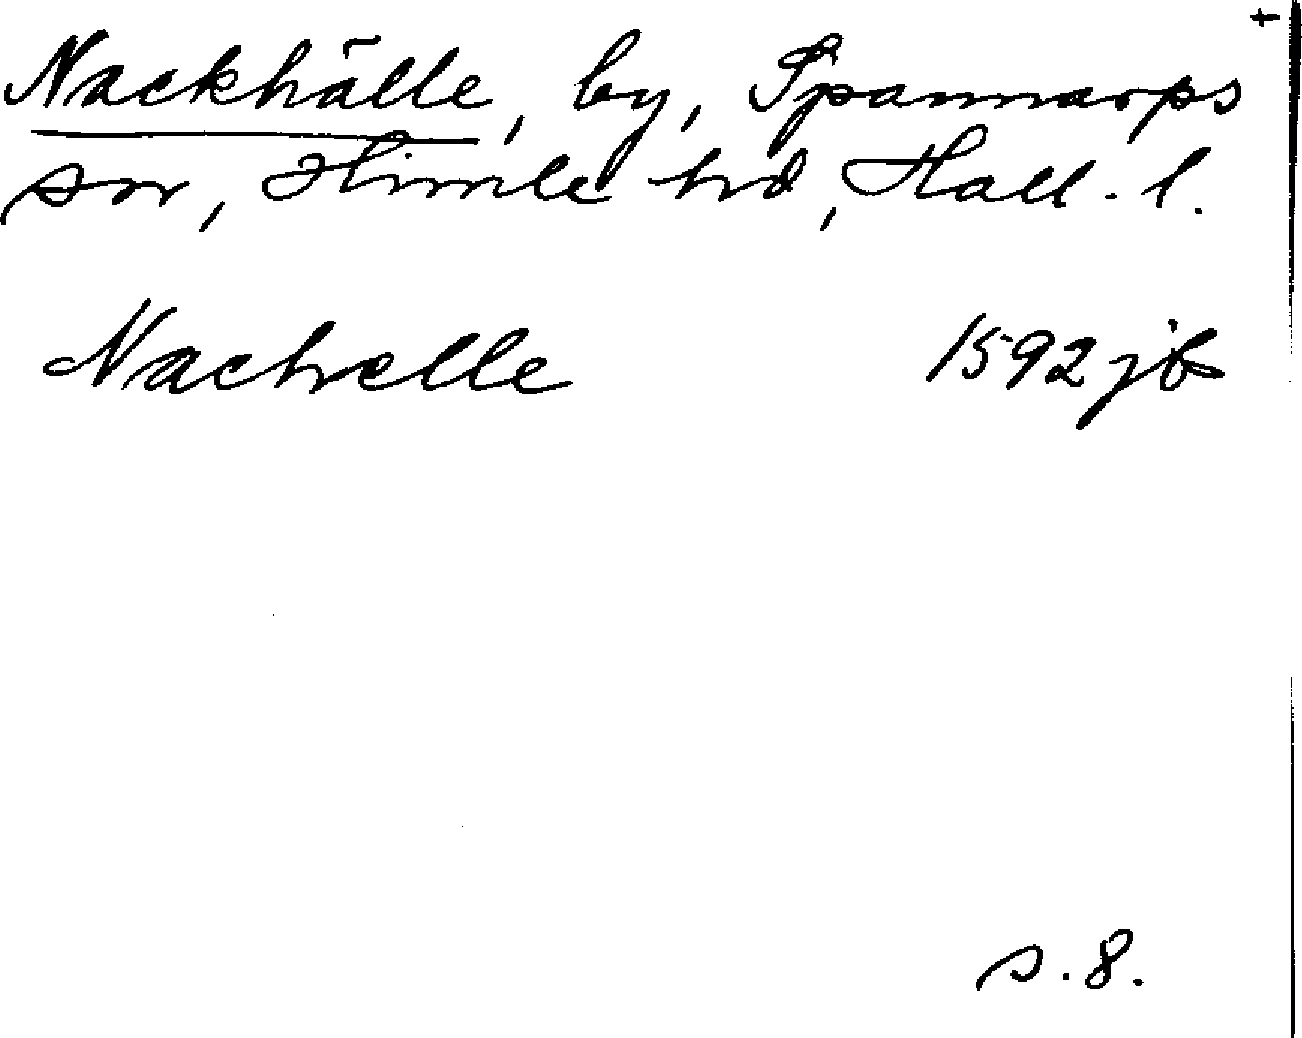 +
Nackhälle, by, Spannarps
sn, Himle hd, Hall. l.
Nachelle 1592 jb
s. 8.